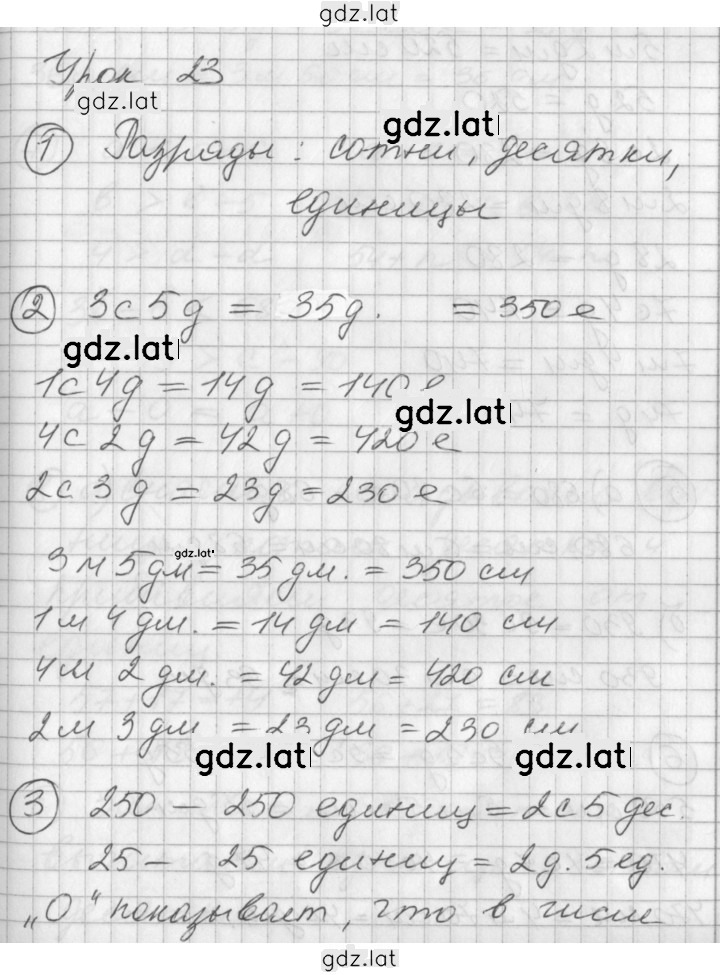 gdz.lat
Урок 23
gdz.lat
gdz.lat
① Разряды: сотни, десятки,
единицы
② 3с 5д = 35д. = 350е
gdz.lat
1с 4д = 14д = 140е
gdz.lat
4с 2д = 42д = 420е
2с 3д = 23д = 230е
gdz.lat
3м 5дм = 35дм. = 350 см
1м 4дм. = 14дм = 140 см
4м 2дм. = 42дм = 420 см
2м 3дм. = 23дм = 230 см
gdz.lat gdz.lat
③ 250 – 250 единиц = 2с 5дес.
25 – 25 единиц = 2д. 5ед.
„0“ показывает, что в числе
gdz.lat